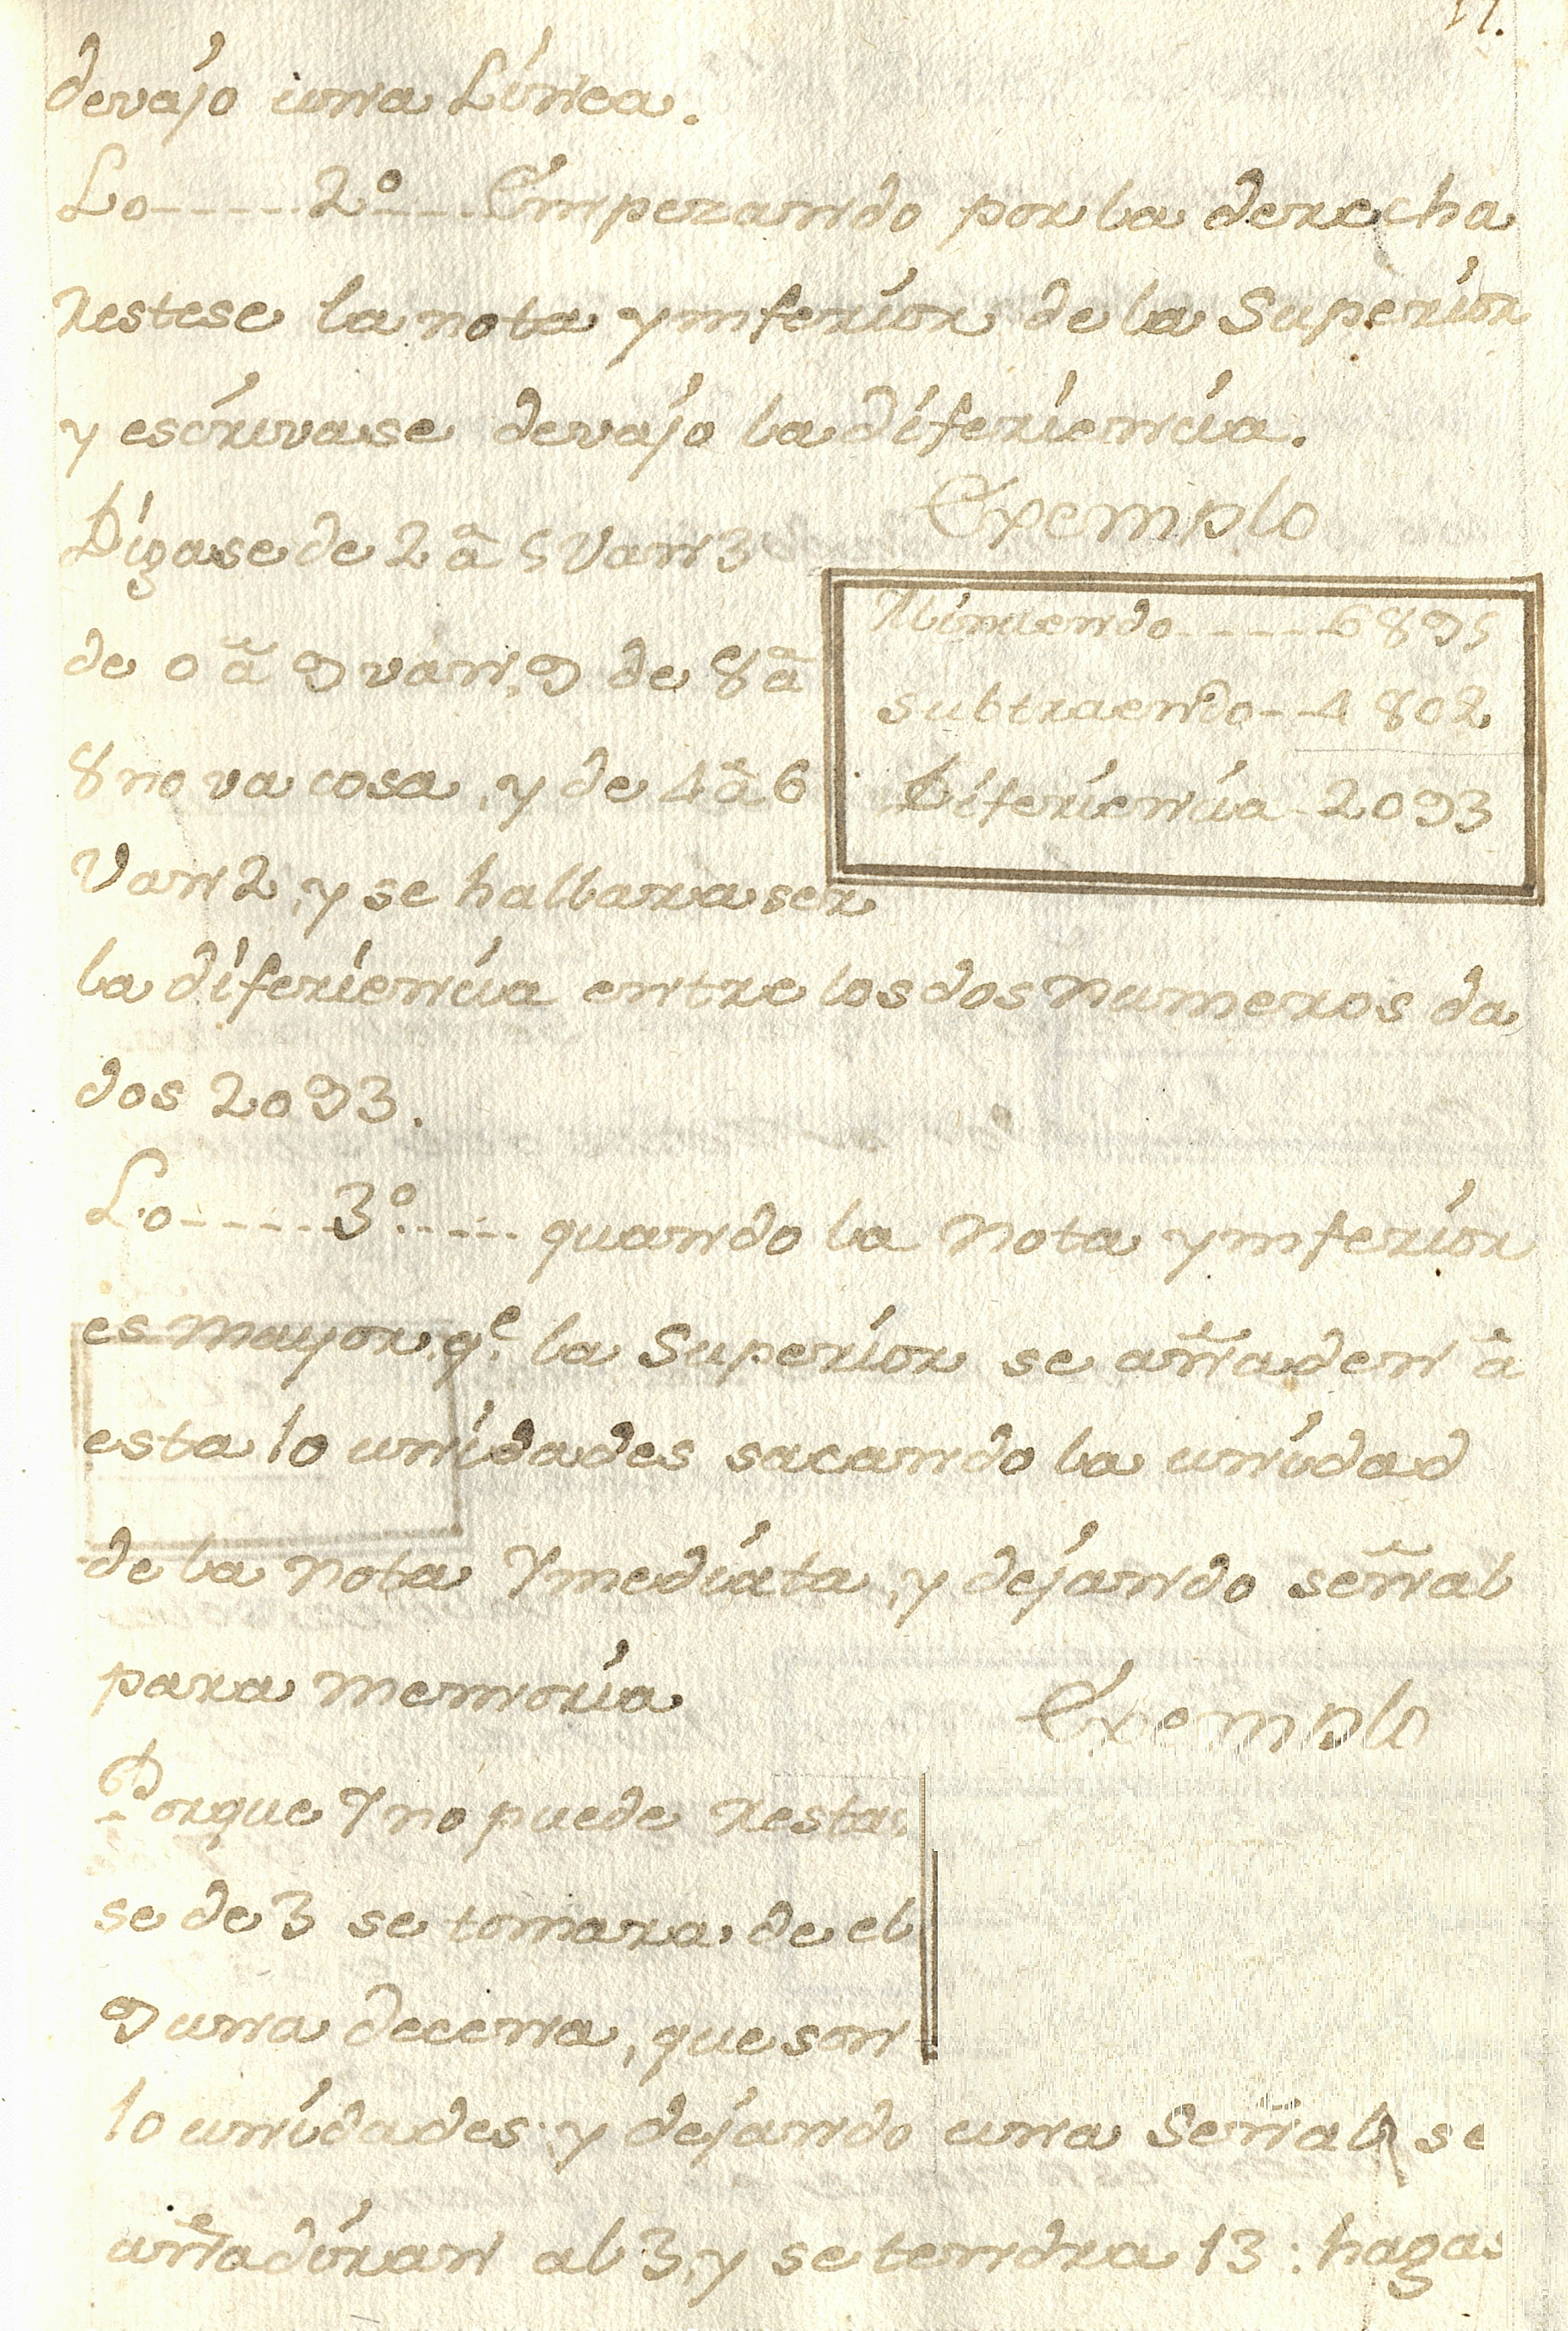 11.
devajo una Línea.
Lo-----2º----Empezando por la derecha
restese la nota ynferior de la Superior
y escrivase devajo la diferiencia.
Exemplo
Digase de 2 â 5 Van 3
de 0 â 9 van, 9 de 8 â
8 no va cosa, y de 4 â 6
Van 2, y se hallara ser
Minuendo-----6895
subtraendo--4802
Diferiencia-2093
la diferiencia entre los dos numeros da
dos 2093.
Lo-----3º----- quando la nota ynferior
es mayor, qe. la Superior se añaden â
esta 10 unidades sacando la unidad
de la nota Ymediata, y dejando señal
para memoria
Exemplo
Porque 7 no puede resta
se de 3 se tomara de el
9 una decena, que son
10 unidades; y dejando una Señal se
añadiran al 3, y se tendra 13: hagas